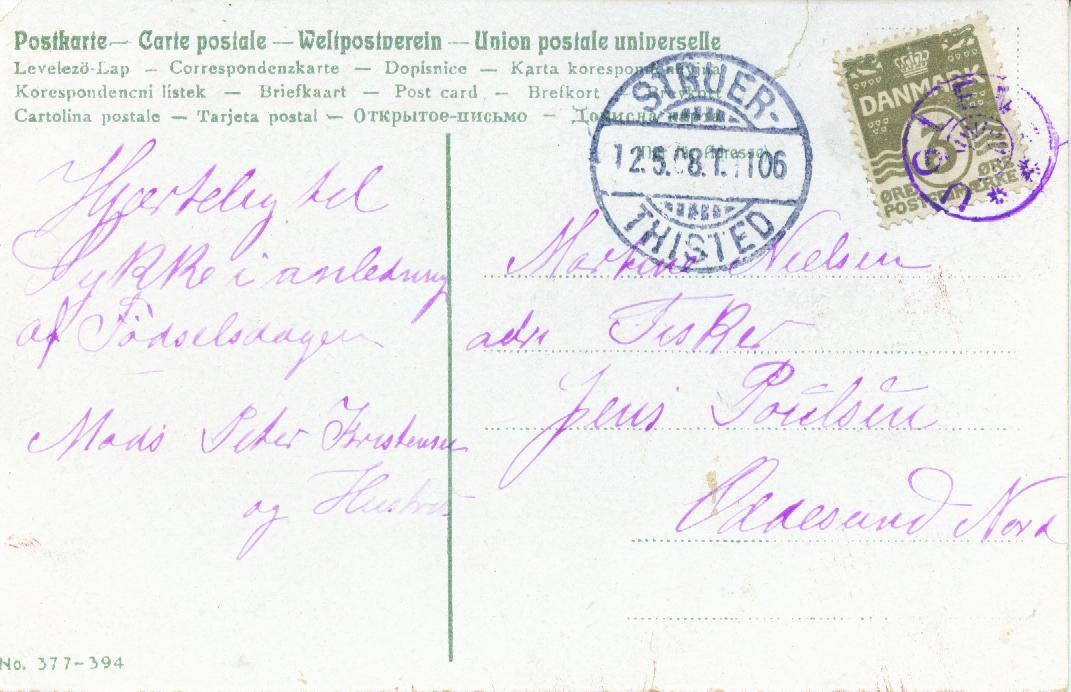 Postkarte — Carte postale — Weltpostverein — Union postale universelle
Levelező-Lap — Correspondenzkarte — Dopisnice — Karta korespondencyjna
Korespondencni listek — Briefkaart — Post card — Brefkort — Brevkort
Cartolina postale — Tarjeta postal — Открытое-письмо — Дописна карта
DANMARK
3
ØRE ØRE
POSTFRIMÆRKE
12.5.08.
THISTED
Hjærtelig til
Lykke i anledning
af Födselsdagen
Mads Peter Kristensen
og Hustru
Martine Nielsen
adr Fisker
Jens Poulsen
Oddesund Nord
No. 377-394